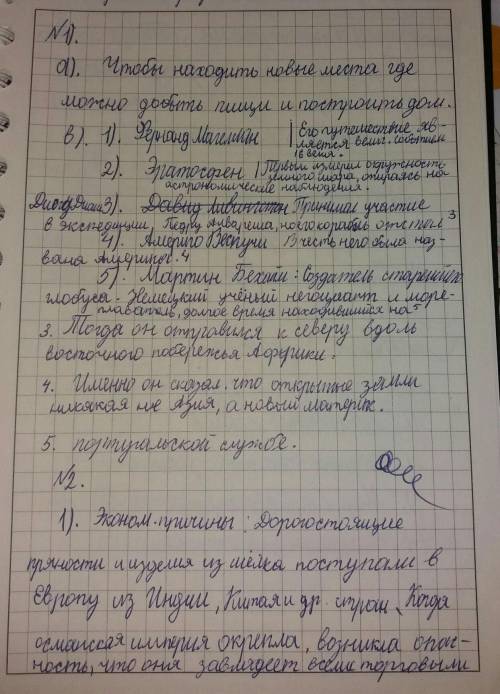 №1).
а). Чтобы находить новые места где
можно добыть пищи и построить дом.
в). 1). Фернанд Магеллан | Его путешествие яв-
ляется вели. событием
16 века.
2). Эратосфен | Первым измерил окружность
земного шара, опираясь на
астрономические наблюдения.
Диогу Диаш 3). Давид Ливингстон Принимал участие
в экспедиции, Педру Алвареша, но его корабль отстал 3
4). Америго Веспучи В честь него была наз-
вана Америка. 4
5). Мартин Бехайм: Создатель старейшего
глобуса - Немецкий учёный негоциант и море-
плаватель, долгое время находившийся на 5
3. Тогда он отправился к северу вдоль
восточного побережья Африки.
4. Именно он сказал что открытые земли
никакая не Азия, а новый материк.
5. португальской службе.
№2.
1). Эконом. причины: Дорогостоящие
пряности и изделия из шёлка поступали в
Европу из Индии, Китая и др. стран, Когда
османская империя окрепла, возникла опас-
ность, что она завладеет всеми торговыми